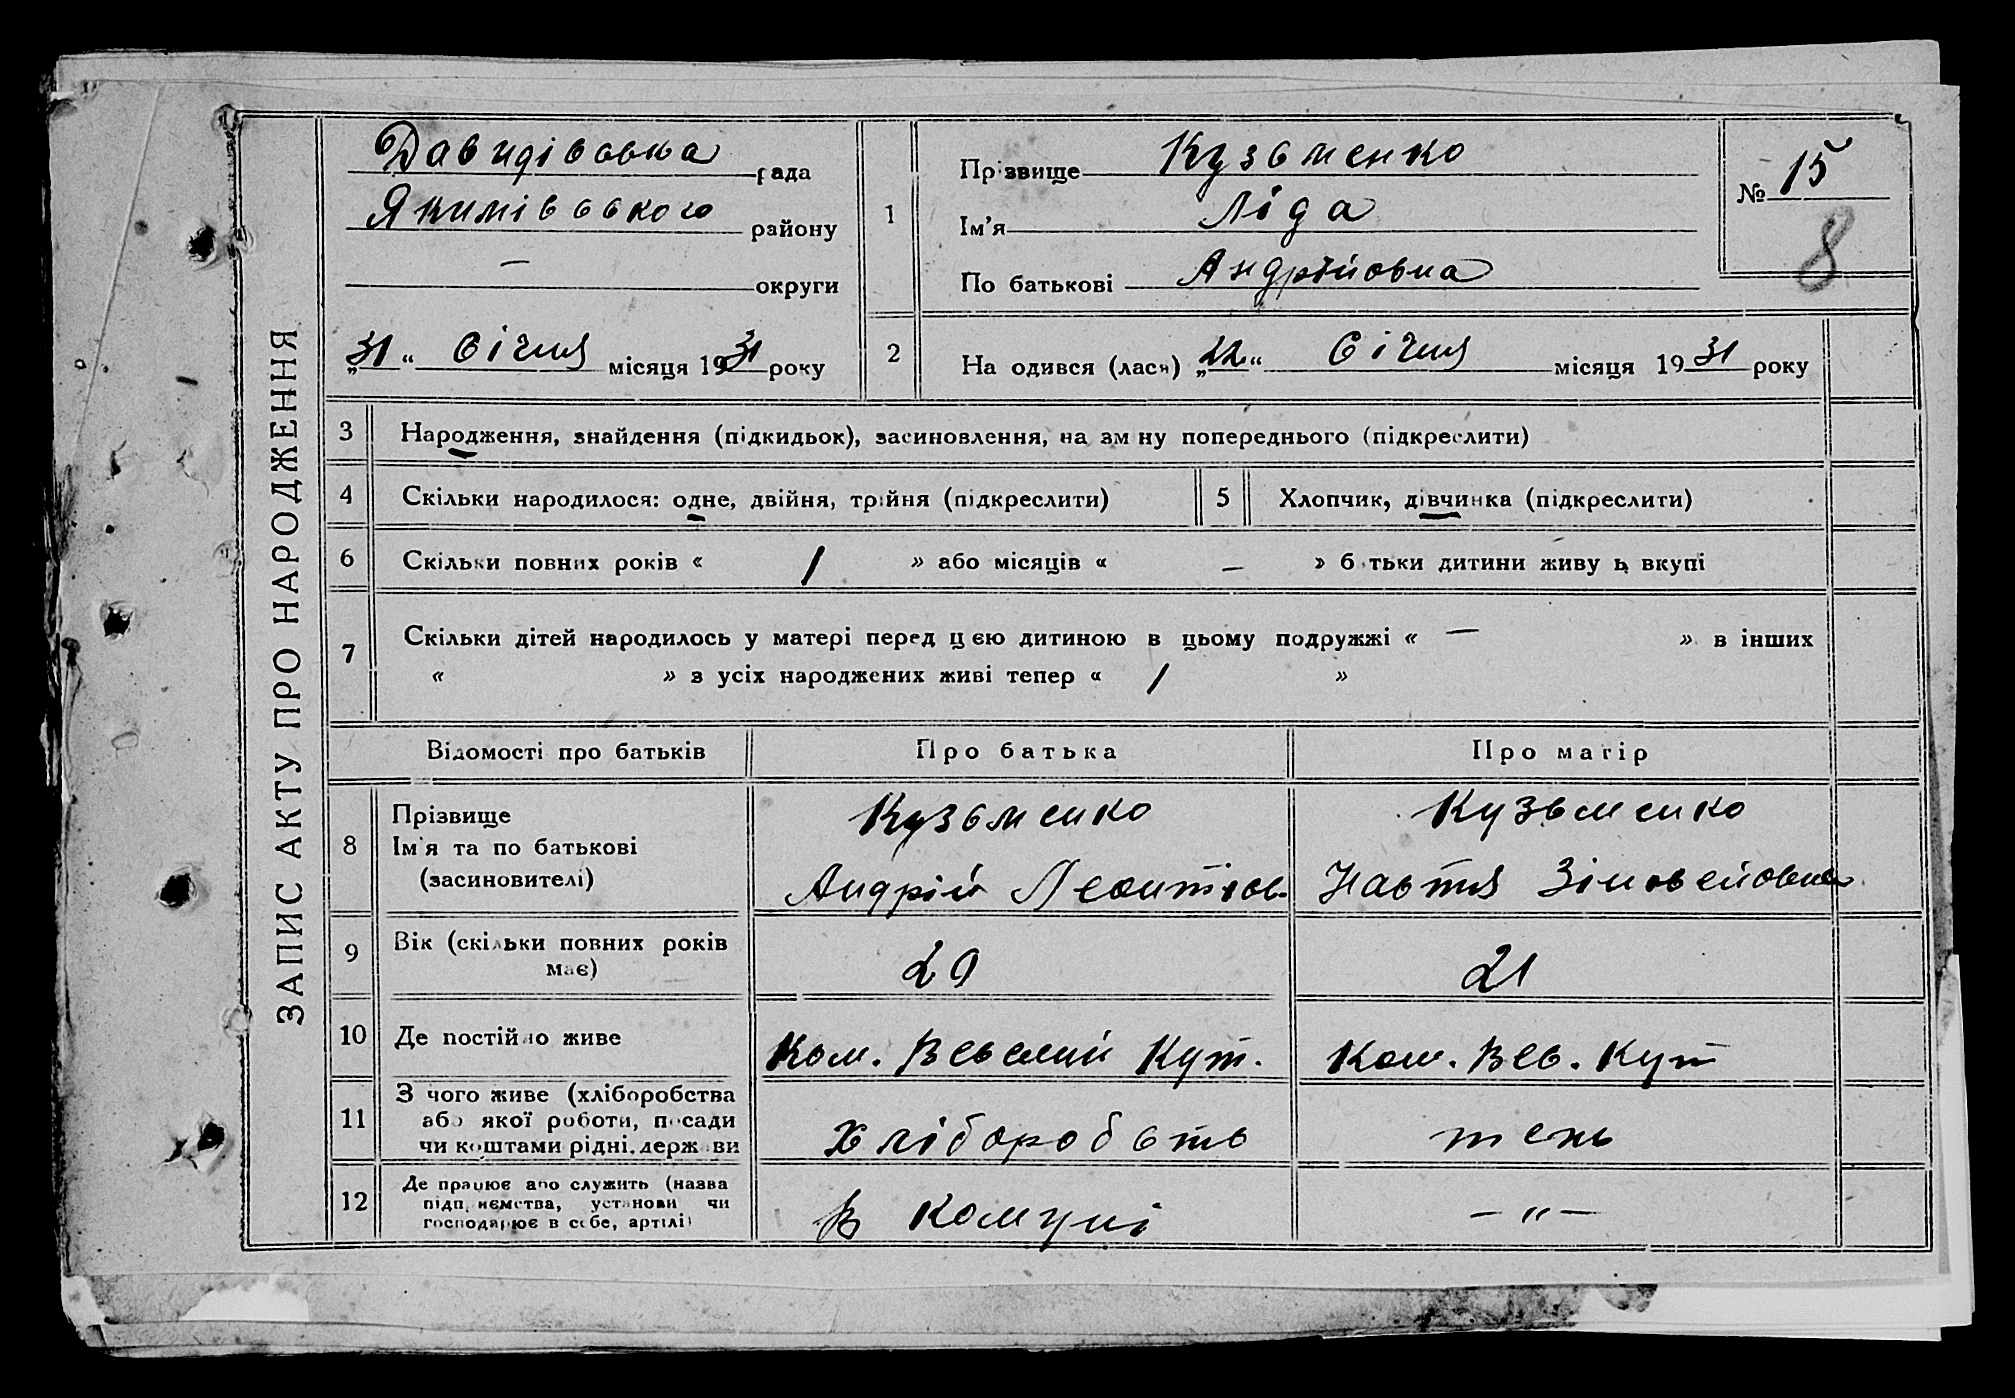 ЗАПИС АКТУ ПРО НАРОДЖЕННЯ
Давидівська рада
Якимівського району
— округи
„31“ Січня місяця 1931 року
1
Прізвище Кузьменко
Ім’я Ліда
По батькові Андрійовна
№ 15
8
2
На одився (лася) „22“ Січня місяця 1931 року
3 Народження, знайдення (підкидьок), засиновлення, на зм ну попереднього (підкреслити)
4 Скільки народилося: одне, двійня, трійня (підкреслити)
5 Хлопчик, дівчинка (підкреслити)
6 Скільки повних років « 1 » або місяців « — » б тьки дитини живу ь вкупі
7 Скільки дітей народилось у матері перед цією дитиною в цьому подружжі « — » в інших
« » з усіх народжених живі тепер « 1 »
Відомості про батьків Про батька Про матір
8 Прізвище Кузьменко Кузьменко
Ім’я та по батькові
(засиновителі) Андрій Леонтіов. Настя Зіновейовна
9 Вік (скільки повних років
має) 29 21
10 Де постійно живе Ком. Веселий Кут. Ком. Вес. Кут
11 З чого живе (хліборобства
або якої роботи, посади
чи коштами рідні, держави Хліборобств тень
12 Де працює або служить (назва
підприємства, установи чи
господарює в себе, артілі) В комуні — „ —